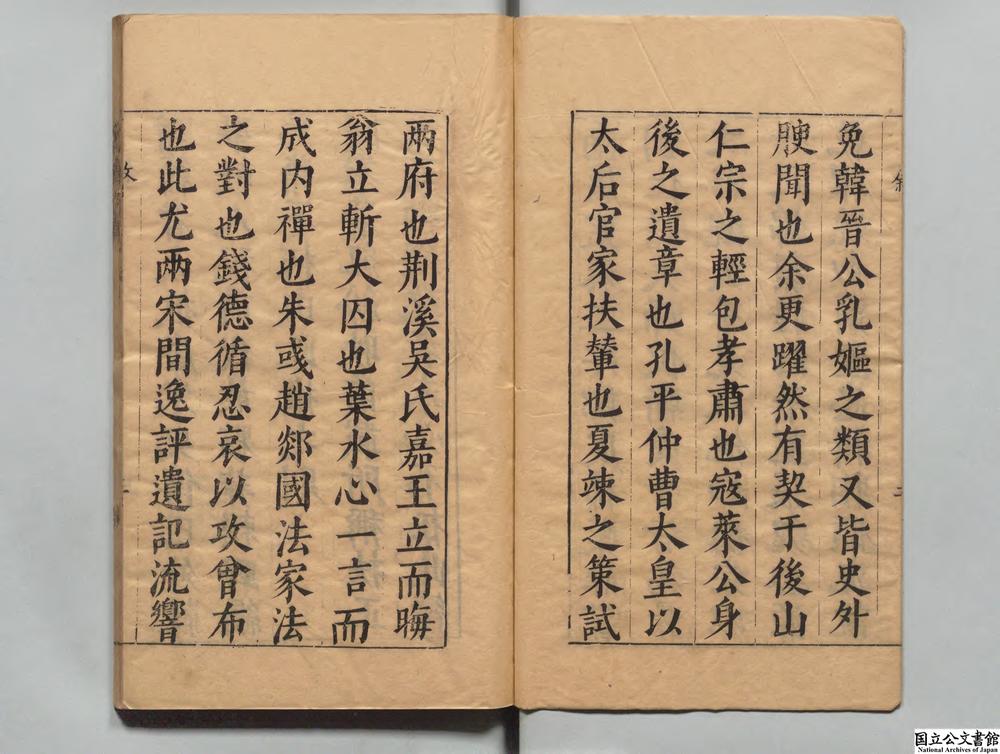 免韓晉公乳嫗之類又皆史外
腴聞也余更躍然有契于後山
仁宗之輕包孝肅也寇萊公身
後之遺章也孔平仲曹太皇以
太后官家扶輦也夏竦之策試
兩府也荆溪吳氏嘉王立而晦
翁立斬大囚也葉水心一言而
成内禪也朱彧趙郯國法家法
之對也錢德循忍哀以攻曾布
也此尤兩宋間逸評遺記流響
国立公文書館
National Archives of Japan